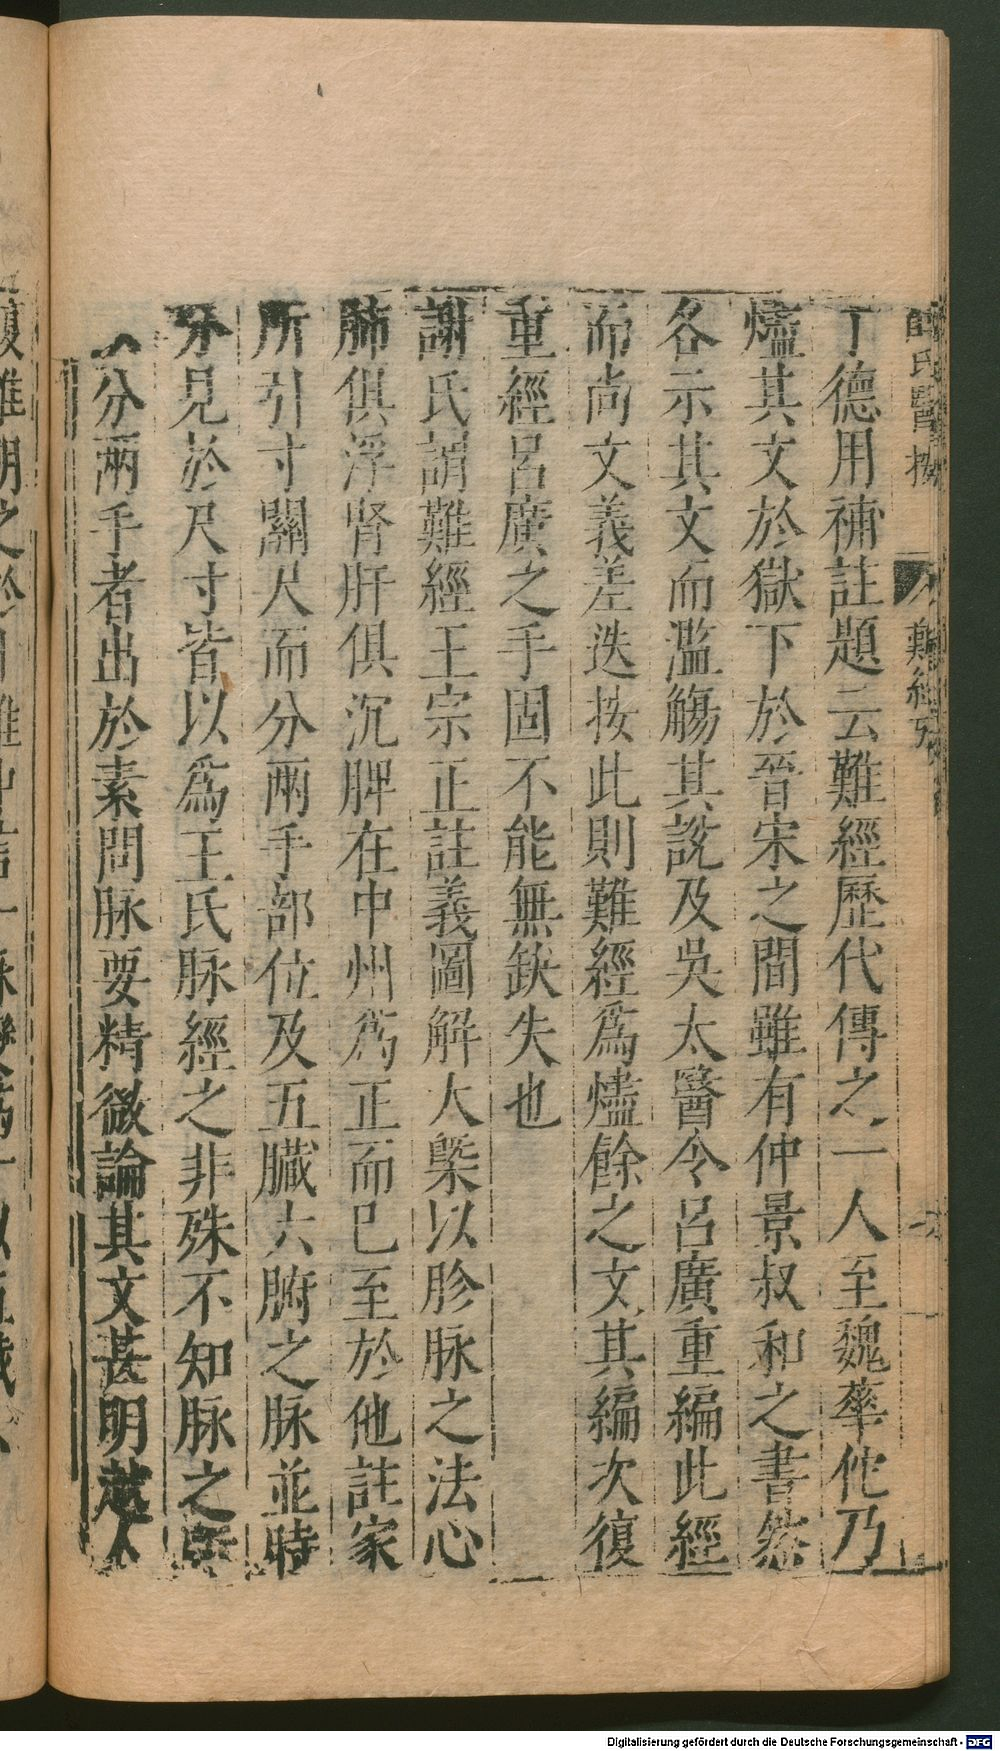 薛氏醫按 難經攷 六
丁德用補註題云難經歷代傳之一人至魏華佗乃
燼其文於獄下於晉宋之間雖有仲景叔和之書然
各示其文而濫觴其說及吳太醫令呂廣重編此經
而尚文義差迭按此則難經爲燼餘之文其編次復
重經呂廣之手固不能無缺失也
謝氏謂難經王宗正註義圖解大槩以胗脉之法心
肺俱浮腎肝俱沉脾在中州爲正而已至於他註家
所引寸關尺而分兩手部位及五臟六腑之脉並時
分見於尺寸皆以爲王氏脉經之非殊不知脉之
分兩手者出於素問脉要精微論其文甚明越人
Digitalisierung gefördert durch die Deutsche Forschungsgemeinschaft - DFG